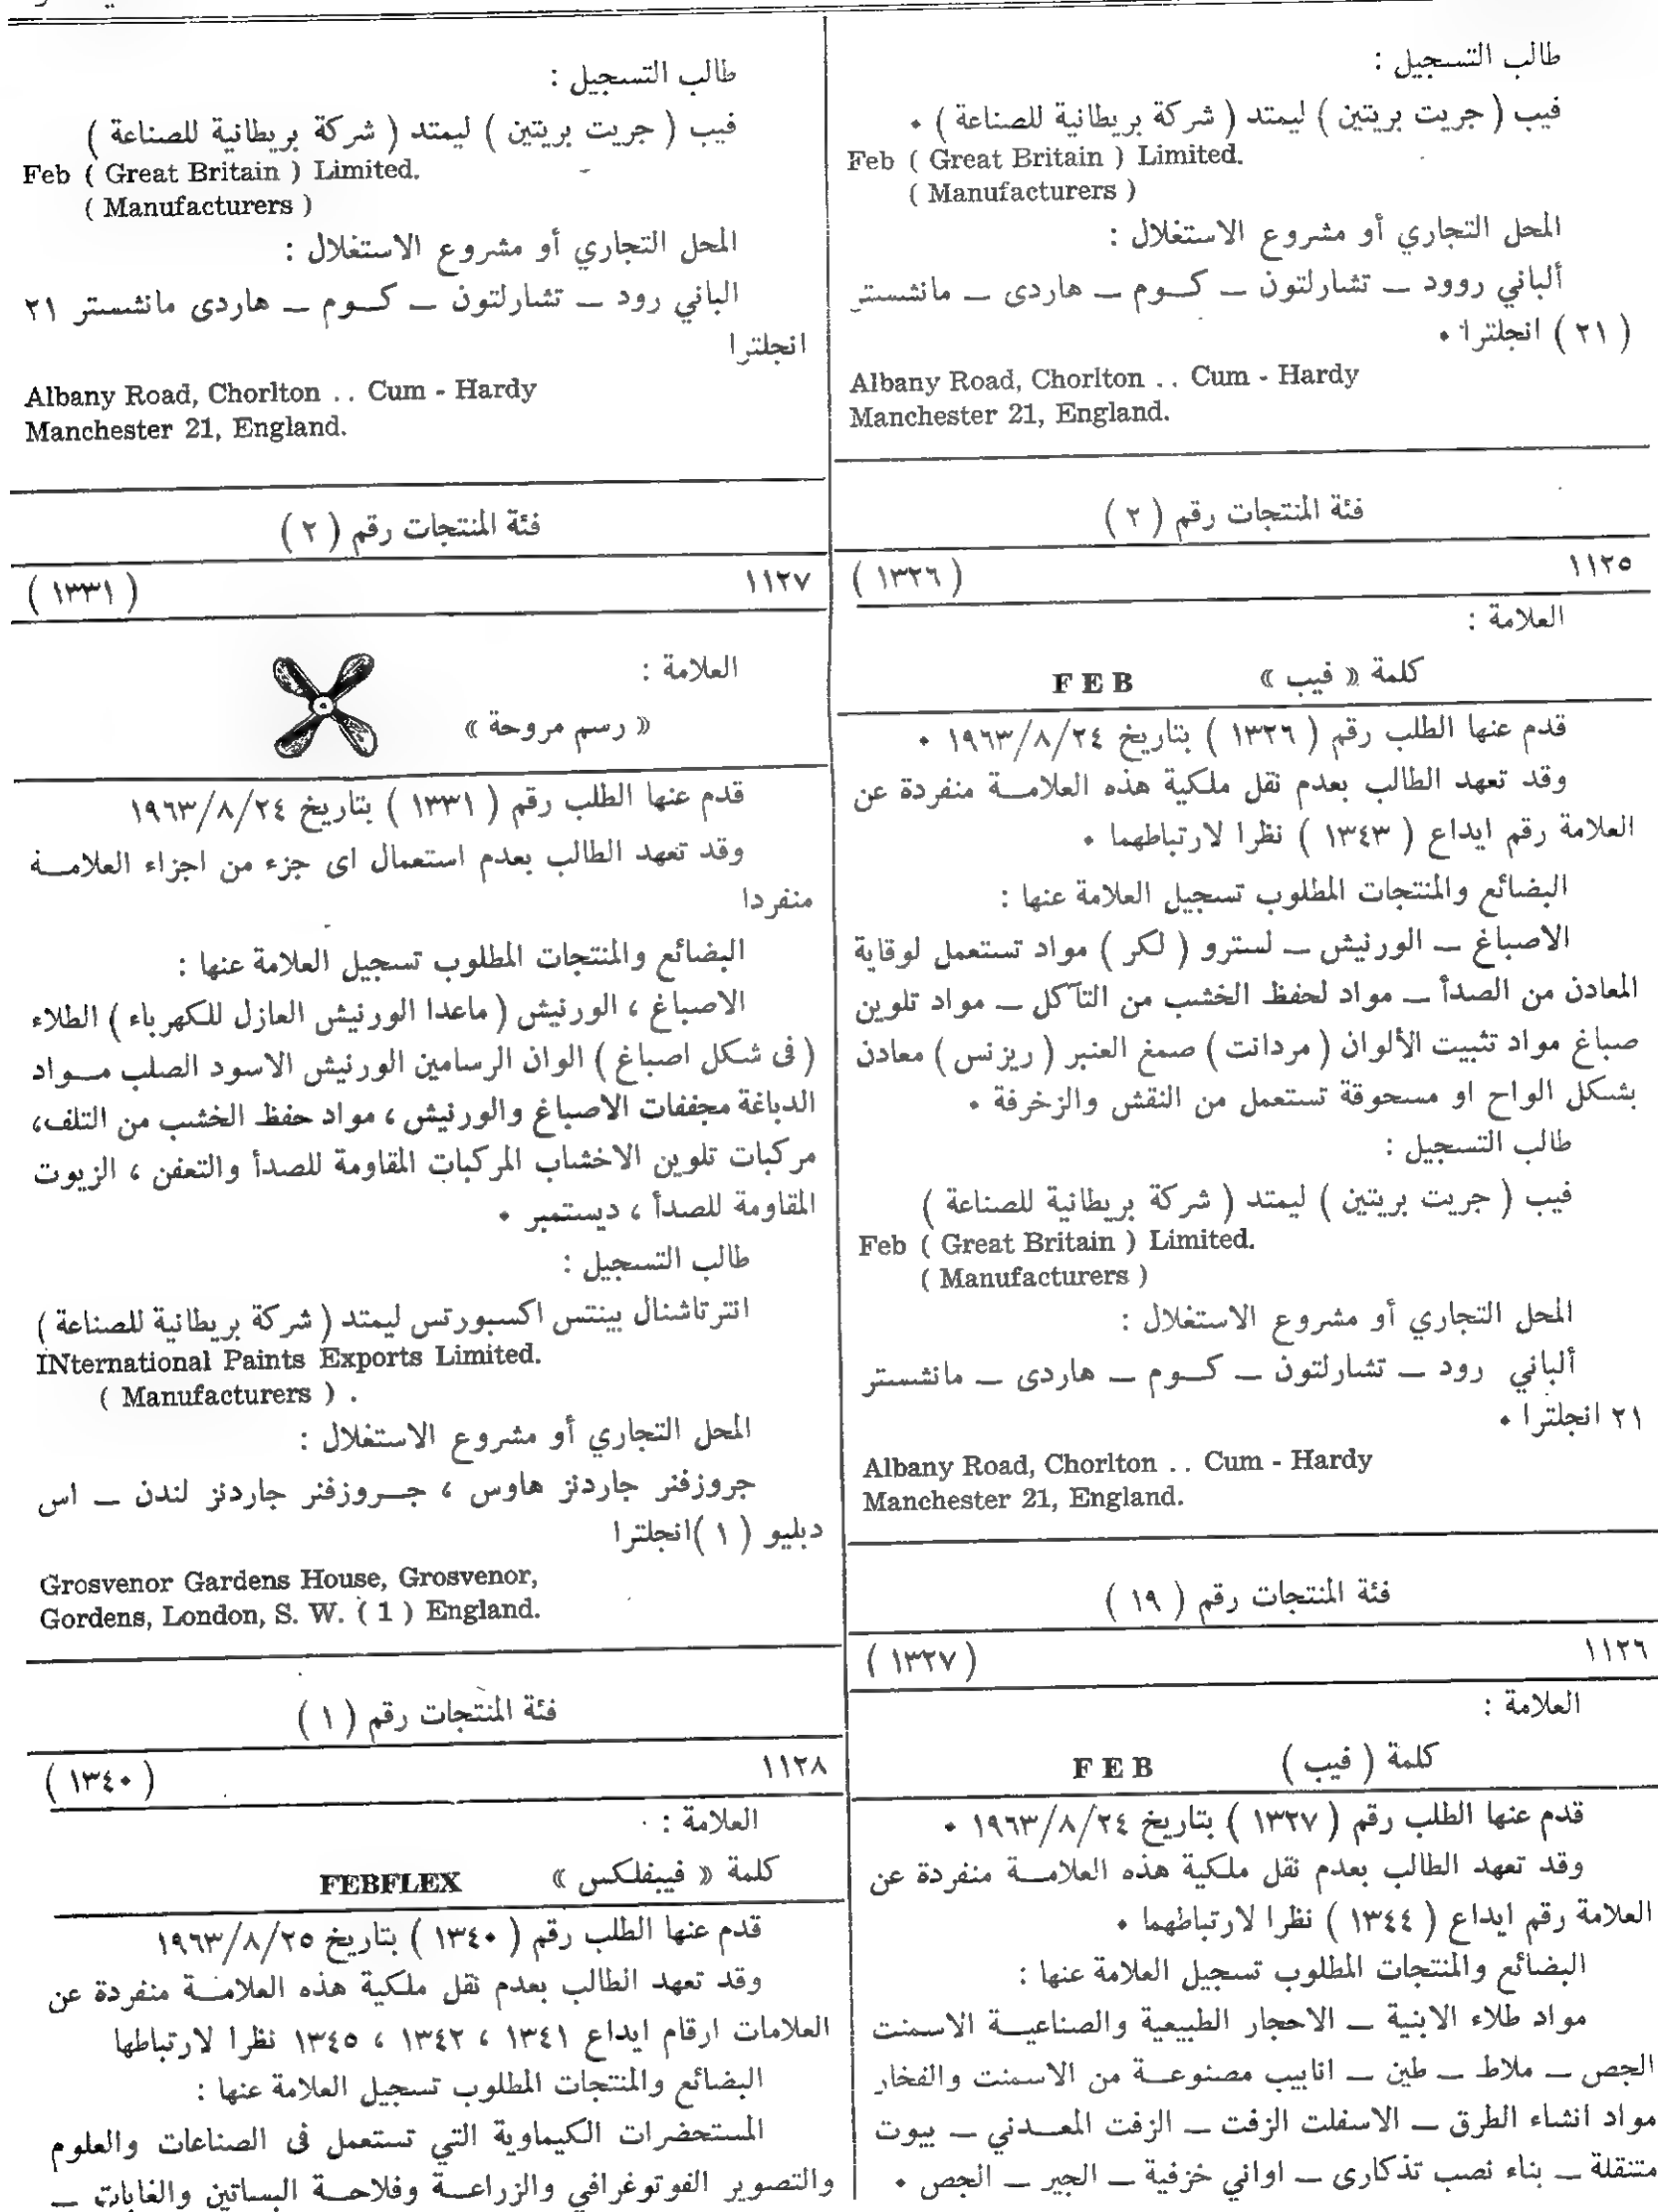 طالب التسجيل :
فيب ( جريت بريتين ) ليمتد ( شركة بريطانية للصناعة ) ٠
Feb ( Great Britain ) Limited.
( Manufacturers )
المحل التجاري أو مشروع الاستغلال :
ألباني روود ــ تشارلتون ــ كــوم ــ هاردى ــ مانشستر
( ٢١ ) انجلترا ٠
Albany Road, Chorlton .. Cum - Hardy
Manchester 21, England.
فئة المنتجات رقم ( ٢ )
١١٢٥ ( ١٣٢٦ )
العلامة :
كلمة « فيب » FEB
قدم عنها الطلب رقم ( ١٣٢٦ ) بتاريخ ١٩٦٣/٨/٢٤ ٠
وقد تعهد الطالب بعدم نقل ملكية هذه العلامــة منفردة عن
العلامة رقم ايداع ( ١٣٤٣ ) نظرا لارتباطهما ٠
البضائع والمنتجات المطلوب تسجيل العلامة عنها :
الاصباغ ــ الورنيش ــ لسترو ( لكر ) مواد تستعمل لوقاية
المعادن من الصدأ ــ مواد لحفظ الخشب من التآكل ــ مواد تلوين
صباغ مواد تثبيت الألوان ( مردانت ) صمغ العنبر ( ريزنس ) معادن
بشكل الواح او مسحوقة تستعمل من النقش والزخرفة ٠
طالب التسجيل :
فيب ( جريت بريتين ) ليمتد ( شركة بريطانية للصناعة )
Feb ( Great Britain ) Limited.
( Manufacturers )
المحل التجاري أو مشروع الاستغلال :
ألباني رود ــ تشارلتون ــ كــوم ــ هاردى ــ مانشستر
٢١ انجلترا ٠
Albany Road, Chorlton .. Cum - Hardy
Manchester 21, England.
فئة المنتجات رقم ( ١٩ )
١١٢٦ ( ١٣٢٧ )
العلامة :
كلمة ( فيب ) FEB
قدم عنها الطلب رقم ( ١٣٢٧ ) بتاريخ ١٩٦٣/٨/٢٤ ٠
وقد تعهد الطالب بعدم نقل ملكية هذه العلامــة منفردة عن
العلامة رقم ايداع ( ١٣٤٤ ) نظرا لارتباطهما ٠
البضائع والمنتجات المطلوب تسجيل العلامة عنها :
مواد طلاء الابنية ــ الاحجار الطبيعية والصناعيــة الاسمنت
الجص ــ ملاط ــ طين ــ انابيب مصنوعــة من الاسمنت والفخار
مواد انشاء الطرق ــ الاسفلت الزفت ــ الزفت المعــدني ــ بيوت
متنقلة ــ بناء نصب تذكارى ــ اواني خزفية ــ الجير ــ الجص ٠
طالب التسجيل :
فيب ( جريت بريتين ) ليمتد ( شركة بريطانية للصناعة )
Feb ( Great Britain ) Limited.
( Manufacturers )
المحل التجاري أو مشروع الاستغلال :
الباني رود ــ تشارلتون ــ كــوم ــ هاردى مانشستر ٢١
انجلترا
Albany Road, Chorlton .. Cum - Hardy
Manchester 21, England.
فئة المنتجات رقم ( ٢ )
١١٢٧ ( ١٣٣١ )
العلامة :
« رسم مروحة »
قدم عنها الطلب رقم ( ١٣٣١ ) بتاريخ ١٩٦٣/٨/٢٤
وقد تعهد الطالب بعدم استعمال اى جزء من اجزاء العلامــة
منفردا
البضائع والمنتجات المطلوب تسجيل العلامة عنها :
الاصباغ ، الورنيش ( ماعدا الورنيش العازل للكهرباء ) الطلاء
( فى شكل اصباغ ) الوان الرسامين الورنيش الاسود الصلب مــواد
الدباغة مجففات الاصباغ والورنيش ، مواد حفظ الخشب من التلف،
مركبات تلوين الاخشاب المركبات المقاومة للصدأ والتعفن ، الزيوت
المقاومة للصدأ ، ديستمبر ٠
طالب التسجيل :
انترتاشنال بينتس اكسبورتس ليمتد ( شركة بريطانية للصناعة )
INternational Paints Exports Limited.
( Manufacturers ) .
المحل التجاري أو مشروع الاستغلال :
جروزفنر جاردنز هاوس ، جــروزفنر جاردنز لندن ــ اس
دبليو ( ١ )انجلترا
Grosvenor Gardens House, Grosvenor,
Gordens, London, S. W. ( 1 ) England.
فئة المنتجات رقم ( ١ )
١١٢٨ ( ١٣٤٠ )
العلامة :
كلمة « فيبفلكس » FEBFLEX
قدم عنها الطلب رقم ( ١٣٤٠ ) بتاريخ ١٩٦٣/٨/٢٥
وقد تعهد الطالب بعدم نقل ملكية هذه العلامــة منفردة عن
العلامات ارقام ايداع ١٣٤١ ، ١٣٤٢ ، ١٣٤٥ نظرا لارتباطها
البضائع والمنتجات المطلوب تسجيل العلامة عنها :
المستحضرات الكيماوية التي تستعمل فى الصناعات والعلوم
والتصوير الفوتوغرافي والزراعــة وفلاحــة البساتين والغابات ــ